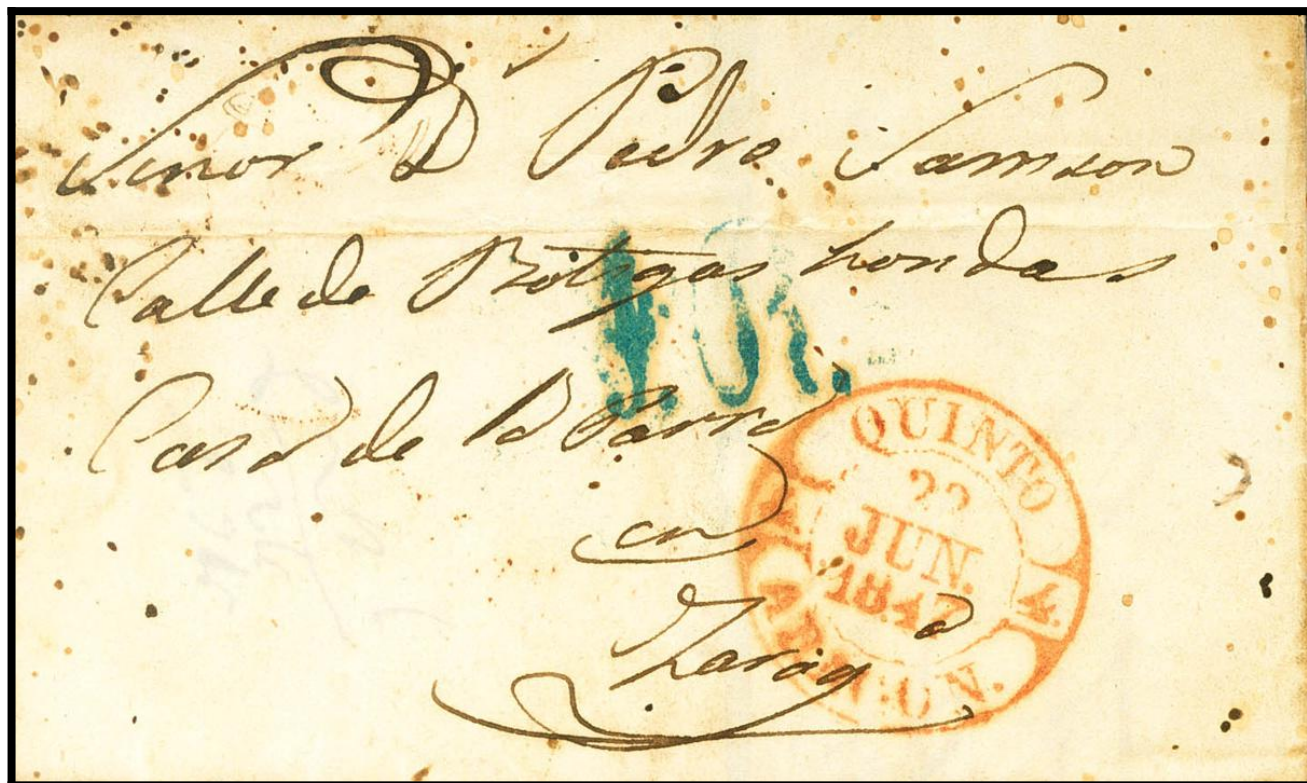 Señor D Pedro Samson
Calle de Botigas hondas
Casa de la Parra
en
Zarag.ª
1.R.
QUINTO
22
JUN.
1847
ARAGON.
4.